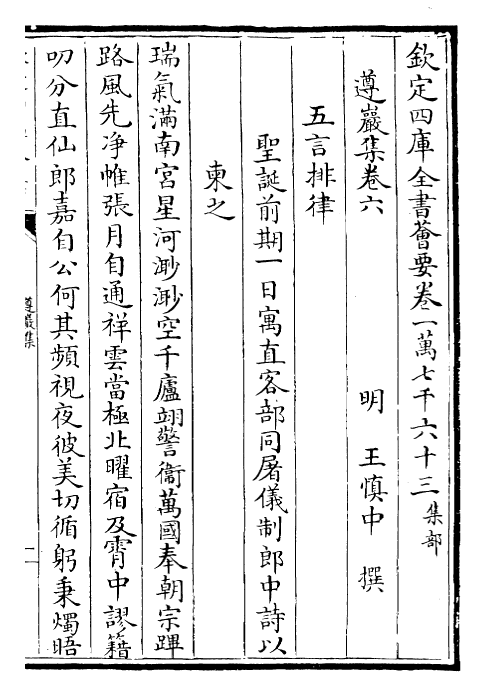 欽定四庫全書薈要卷一萬七千六十三集部
遵巖集卷六
明 王慎中 撰
五言排律
聖誕前期一日寓直客部同屠儀制郎中詩以
柬之
瑞氣滿南宮星河渺渺空千廬翊警衛萬國奉朝宗蹕
路風先净帷張月自通祥雲當極北曜宿及霄中謬籍
叨分直仙郎嘉自公何其頻視夜彼美切循躬秉燭晤
遵巖集